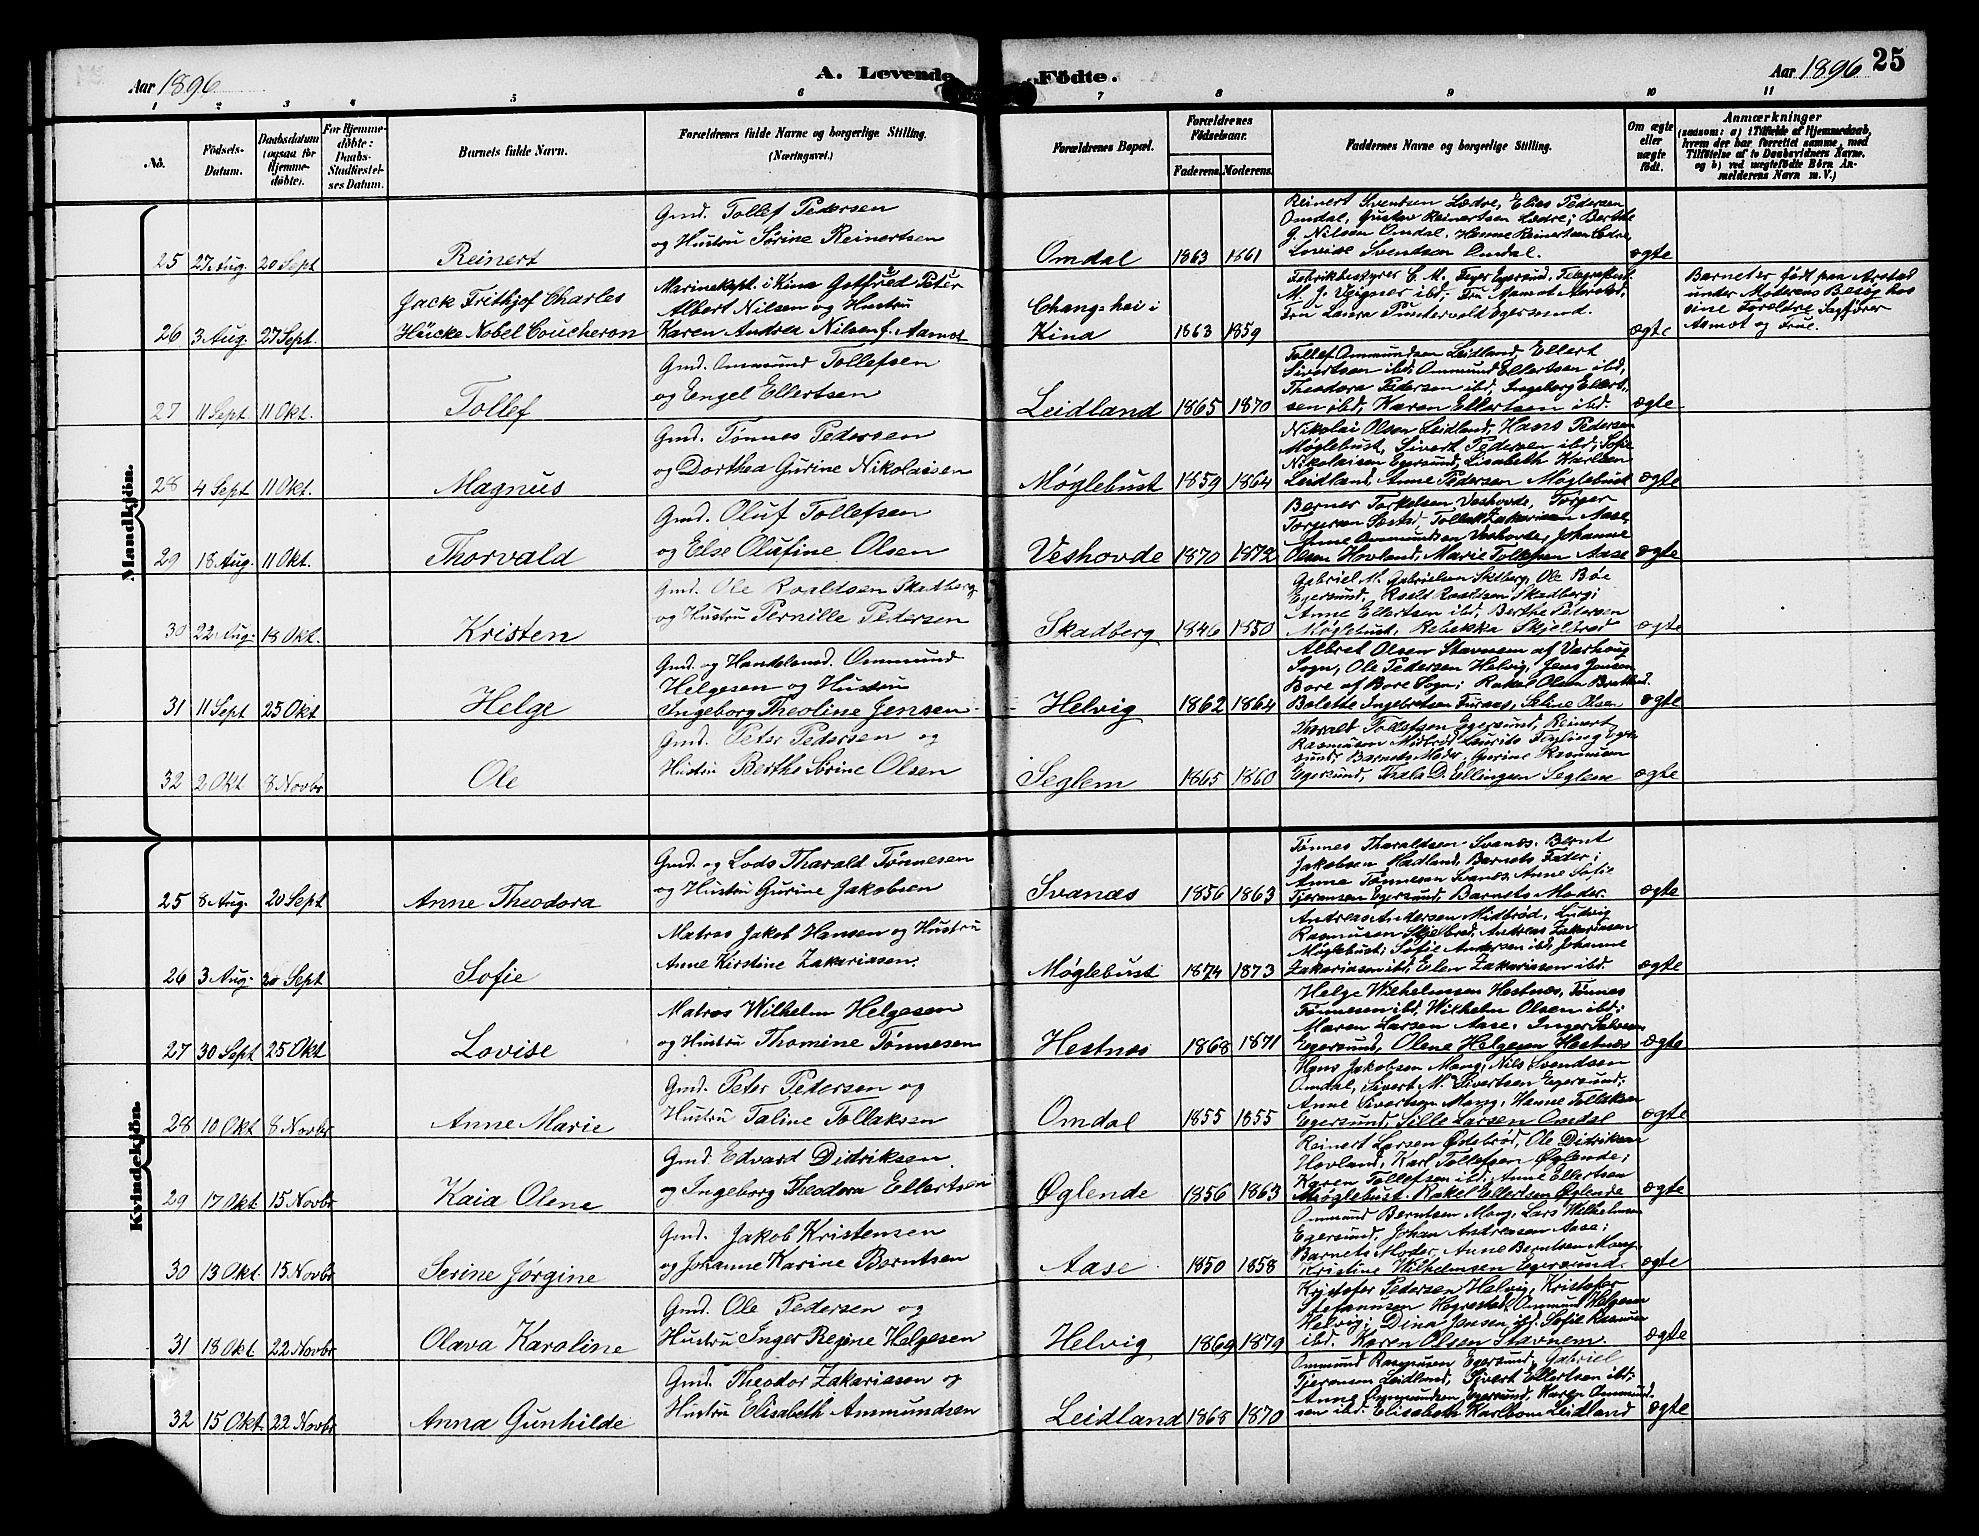 Aar 1896
A. Levende
Födte.
Aar 1896
25
1 2 3 4 5 6 7 8 9 10 11
No.
Födsels-
Datum.
Daabsdatum
(ogsaa for
Hjemme-
døbte).
For Hjemme-
döbte:
Daabs-
Stadfæstel-
ses Datum.
Barnets fulde Navn.
Forældrenes fulde Navne og borgerlige Stilling.
(Næringsvei.)
Forældrenes Bopæl.
Forældrenes
Födselsaar.
Faderens.
Moderens.
Faddernes Navne og borgerlige Stilling.
Om ægte
eller
uægte
födt.
Anmærkninger
(saasom: a) i Tilfælde af Hjemmedaab,
hvem der har forrettet samme, med
Tilföielse af to Daabsvidners Navne,
og b) ved uægtefödte Börn An-
melderens Navn m. V.)
Mandkjön.
25 27 Aug. 20 Sept
Reinert
Gmd. Tollef Pedersen
og Hustru Sørine Reinertsen
Omdal 1863 1861
Reinert Svendsen Lædre, Elias Pedersen
Omdal, Gustav Reinertsen Lædre; Berthe
G. Nilsen Omdal, Hanne Reinertsen Lædre,
Lovise Svendsen Omdal.
ægte
26 3 Aug. 27 Sept.
Jack Frithjof Charles
Hücke Nobel Coucheron
Marinekapt. i Kina Gotfred Peter
Albert Nilsen og Hustru
Karen Andrea Nilsen f. Aamot
Chang-hai i
Kina
1863 1859
Fabrikbestyrer C. M. Feyer Egersund, Telegrafbest.
M. J. Veigner ibd; Fru Aamot Aarstad,
Fru Laura Puntervold Egersund.
ægte
Barnet er født paa Aarstad
under Moderens Besøg hos
sine Forældre, Sagfører
Aamot og Frue.
27 11 Sept. 11 Okt.
Tollef
Gmd. Ommund Tollefsen
og Engel Ellertsen
Leidland 1865 1870
Tollef Ommundsen Leidland, Ellert
Sivertsen ibd, Ommund Ellertsen ibd,
Theodora Pedersen ibd, Ingeborg Ellert-
sen ibd, Karen Ellertsen ibd.
ægte
28 4 Sept 11 Okt.
Magnus
Gmd. Tønnes Pedersen
og Dorthea Gurine Nikolaisen
Møglebust 1859 1864
Nikolai Olsen Leidland, Hans Pedersen
Møglebust, Sivert Pedersen ibd; Sofie
Nikolaisen Egersund, Lisabeth Karlsen
Leidland, Anne Pedersen Møglebust
ægte
29 18 Aug. 11 Okt.
Thorvald
Gmd. Oluf Tollefsen
og Else Olufine Olsen
Veshovde 1870 1872
Berner Torkelsen Veshovde, Torger
Torgersen, Tollak Zakariasen Aase,
Anne Ommundsen Veshovde, Johanne
Olsen Hovland, Marie Tollefsen Aase
ægte
30 22 Aug. 18 Okt.
Kristen
Gmd. Ole Roaldsen Skadberg
og Hustru Pernille Pedersen
Skadberg 1846 1850
Gabriel M. Gabrielsen, Ole Bøe
Egersund, Roald Roaldsen Skadberg;
Anne Ellertsen ibd, Berthe Pedersen
Møglebust, Rebekka Skjelbred
ægte
31 11 Sept 25 Okt
Helge
Gmd. og Handelsmd. Ommund
Helgesen og Hustru
Ingeborg Theoline Jensen
Helvig 1862 1864
Albret Olsen Stavnem af Varhaug
Sogn, Ole Pedersen Helvig, Jens Jensen
Bore af Bore Sogn; Rakel Olsen
Bolette Ingebretsen, Seline Olsen
ægte
32 2 Okt 8 Novbr
Ole
Gmd. Peter Pedersen og
Hustru Berthe Sørine Olsen
Seglem 1865 1860
Tharald Tollefsen Egersund, Reinert
Rasmusen Midbrød, Laurits Egersund;
Barnets Moder, Gurine Rasmusen
Egersund, Thala D. Ellingsen Seglem
ægte
Kvindekjön.
25 8 Aug. 20 Sept
Anne Theodora
Gmd. og Lods Tharald Tønnesen
og Hustru Gurine Jakobsen
Svanæs 1856 1863
Tønnes Tharaldsen Svanæs, Bernt
Jakobsen Hadland, Barnets Fader;
Anne Tønnesen Svanæs, Anne Sofie
Tjeransen Egersund, Barnets Moder.
ægte
26 3 Aug. 20 Sept
Sofie
Matros Jakob Hansen og Hustru
Anne Kirstine Zakariasen.
Møglebust 1874 1873
Andreas Andersen Midbrød, Ludvig
Rasmusen Skjelbred, Andreas Zakariasen
Møglebust; Sofie Andersen ibd, Johanne
Zakariasen ibd, Elen Zakariasen ibd.
ægte
27 30 Sept 25 Okt
Lovise
Matros Wilhelm Helgesen
og Hustru Thomine Tønnesen
Hestnæs 1868 1871
Helge Wilhelmsen Hestnæs, Tønnes
Tønnesen ibd, Wilhelm Olsen ibd;
Maren Larsen Aase, Inger
Egersund, Olene Helgesen Hestnæs
ægte
28 10 Okt 8 Novbr
Anne Marie
Gmd. Peter Pedersen og
Hustru Taline Tollaksen
Omdal 1855 1855
Hans Jakobsen Mong, Nils Svendsen
Omdal, Sivert M. Sivertsen Egersund;
Anne Sivertsen Mong, Hanne Tollaksen
Egersund, Sille Larsen Omdal
ægte
29 17 Okt 15 Novbr
Kaia Olene
Gmd. Edvard Didriksen
og Ingeborg Theodora Ellertsen
Øglende 1856 1863
Reinert Larsen Ødebrød, Ole Didriksen
Hovland, Karl Tollefsen Øglende;
Karen Tollefsen ibd, Anne Ellertsen
Møglebust, Rakel Ellertsen Øglende
ægte
30 13 Okt. 15 Novbr
Serine Jørgine
Gmd. Jakob Kristensen
og Johanne Karine Berntsen
Aase 1850 1858
Ommund Berntsen Mong, Lars Wilhelmsen
Egersund, Johan Andreasen Aase;
Barnets Moder, Anne Berntsen Mong,
Kristine Wilhelmsen Egersund.
ægte
31 18 Okt 22 Novbr
Olava Karoline
Gmd. Ole Pedersen og
Hustru Inger Regine Helgesen
Helvig 1869 1879
Kristofer Pedersen Helvig, Kristofer
Stefansen Hegrestad, Ommund Helgesen
Helvig; Dina Jensen ibd. Sofie Rasmusen
ibd. Karen Olsen Stavnem.
ægte
32 15 Okt. 22 Novbr
Anna Gunhilde
Gmd. Theodor Zakariasen og
Hustru Elisabeth Ammundsen
Leidland 1868 1870
Ommund Rasmusen Egersund, Gabriel
Tjeransen Leidland, Sivert Ellertsen ibd;
Anne Ommundsen Egersund, Karen Ommund-
sen ibd. Elisabeth Karlsen Leidland
ægte